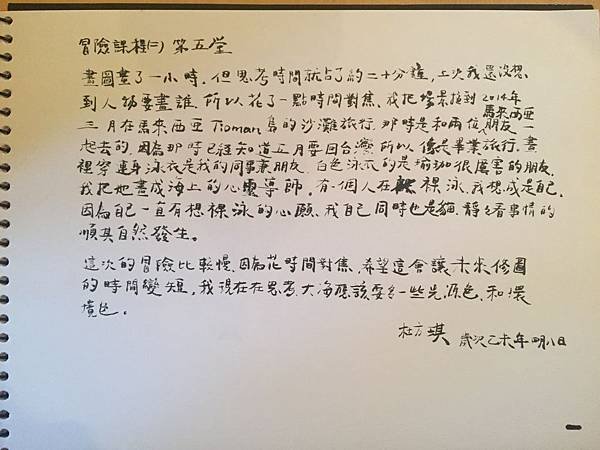 冒險課程(二) 第五堂
畫圖畫了一小時,但思考時間就占了約二十分鐘,上次我還沒想
到人物要畫誰,所以花了一點時間對焦,我把場景拉到2014年
三月在馬來西亞Tioman島的沙灘旅行,那時是和兩位馬來西亞朋友一
起去的,因為那時已經知道五月要回台灣,所以像是畢業旅行,畫
裡穿連身泳衣是我的同事兼朋友,白色泳衣的是瑜珈很厲害的朋友,
我把她畫成海上的心靈導師,有一個人在裸泳,我想成是自己,
因為自己一直有想裸泳的心願,我自己同時也是貓,靜靜看事情的
順其自然發生。
這次的冒險比較慢,因為花時間對焦,希望這會讓未來修圖
的時間變短,我現在在思考,大海應該要給一些光源色,和環
境色。
杜方琪 歲次乙未年四月八日